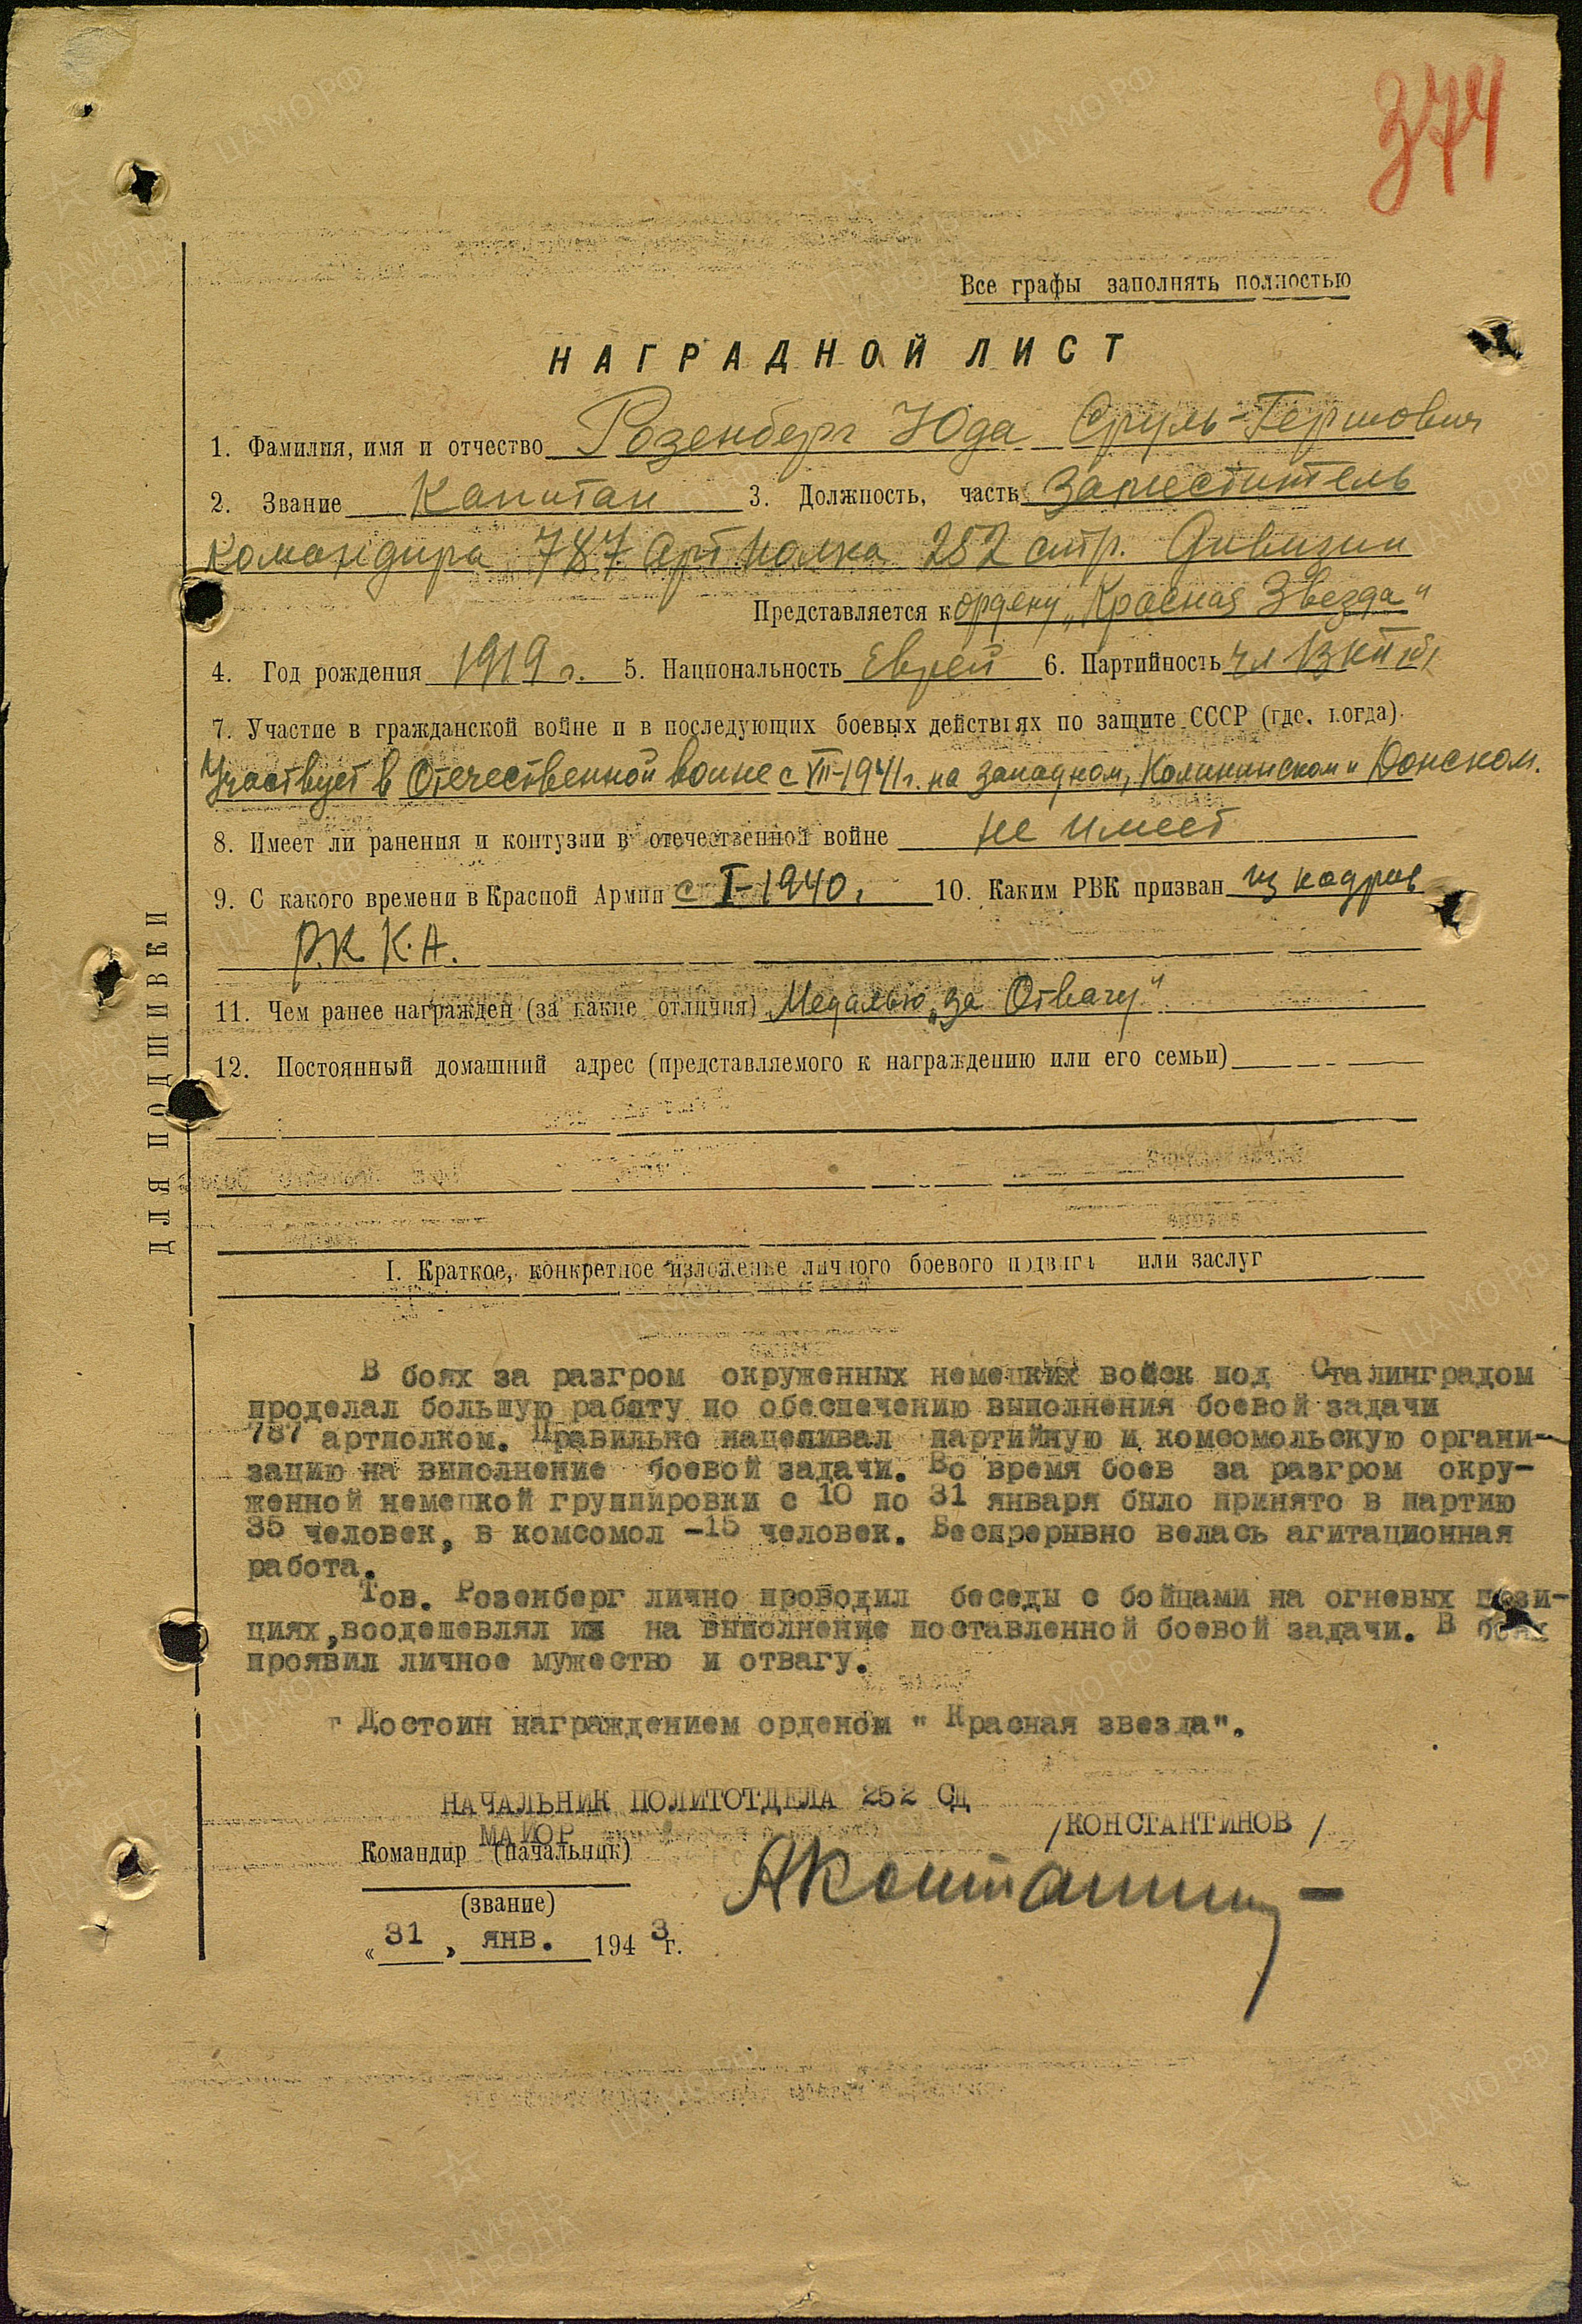 374
Все графы заполнять полностью
НАГРАДНОЙ ЛИСТ
1. Фамилия, имя и отчество Розенберг Юда Сруль-Гершович
2. Звание Капитан 3. Должность, часть Заместитель
командира 787 арт.полка 252 стр. Дивизии
Представляется к ордену „Красная Звезда"
4. Год рождения 1919 г. 5. Национальность Еврей 6. Партийность чл ВКП(б)
7. Участие в гражданской войне и в последующих боевых действиях по защите СССР (где, когда).
Участвует в Отечественной воине с VII-1941г. на Западном, Калининском и Донском.
8. Имеет ли ранения и контузии в отечественной войне не имеет
9. С какого времени в Красной Армии с I-1940. 10. Каким РВК призван из кадров
Р.К.К.А.
11. Чем ранее награжден (за какие отличия) Медалью „За Отвагу"
12. Постоянный домашний адрес (представляемого к награждению или его семьи)
I. Краткое, конкретное изложенье личного боевого подвига или заслуг
В боях за разгром окруженных немецких войск под Сталинградом
проделал большую работу по обеспечению выполнения боевой задачи
787 артполком. Правильно нацеливал партийную и комсомольскую органи-
зацию на выполнение боевой задачи. Во время боев за разгром окру-
женной немецкой группировки с 10 по 31 января было принято в партию
35 человек, в комсомол -15 человек. Беспрерывно велась агитационная
работа.
Тов. Розенберг лично проводил беседы с бойцами на огневых пози-
циях,воодешевлял их на выполнение поставленной боевой задачи. В боях
проявил личное мужество и отвагу.
Достоин награждением орденом " Красная звезда".
НАЧАЛЬНИК ПОЛИТОТДЕЛА 252 СД
МАЙОР /КОНСТАНТИНОВ/
Командир (начальник)
(звание)
«31, янв. 1943г.
ДЛЯ ПОДШИВКИ
ЦАМО.РФ
ПАМЯТЬ НАРОДА